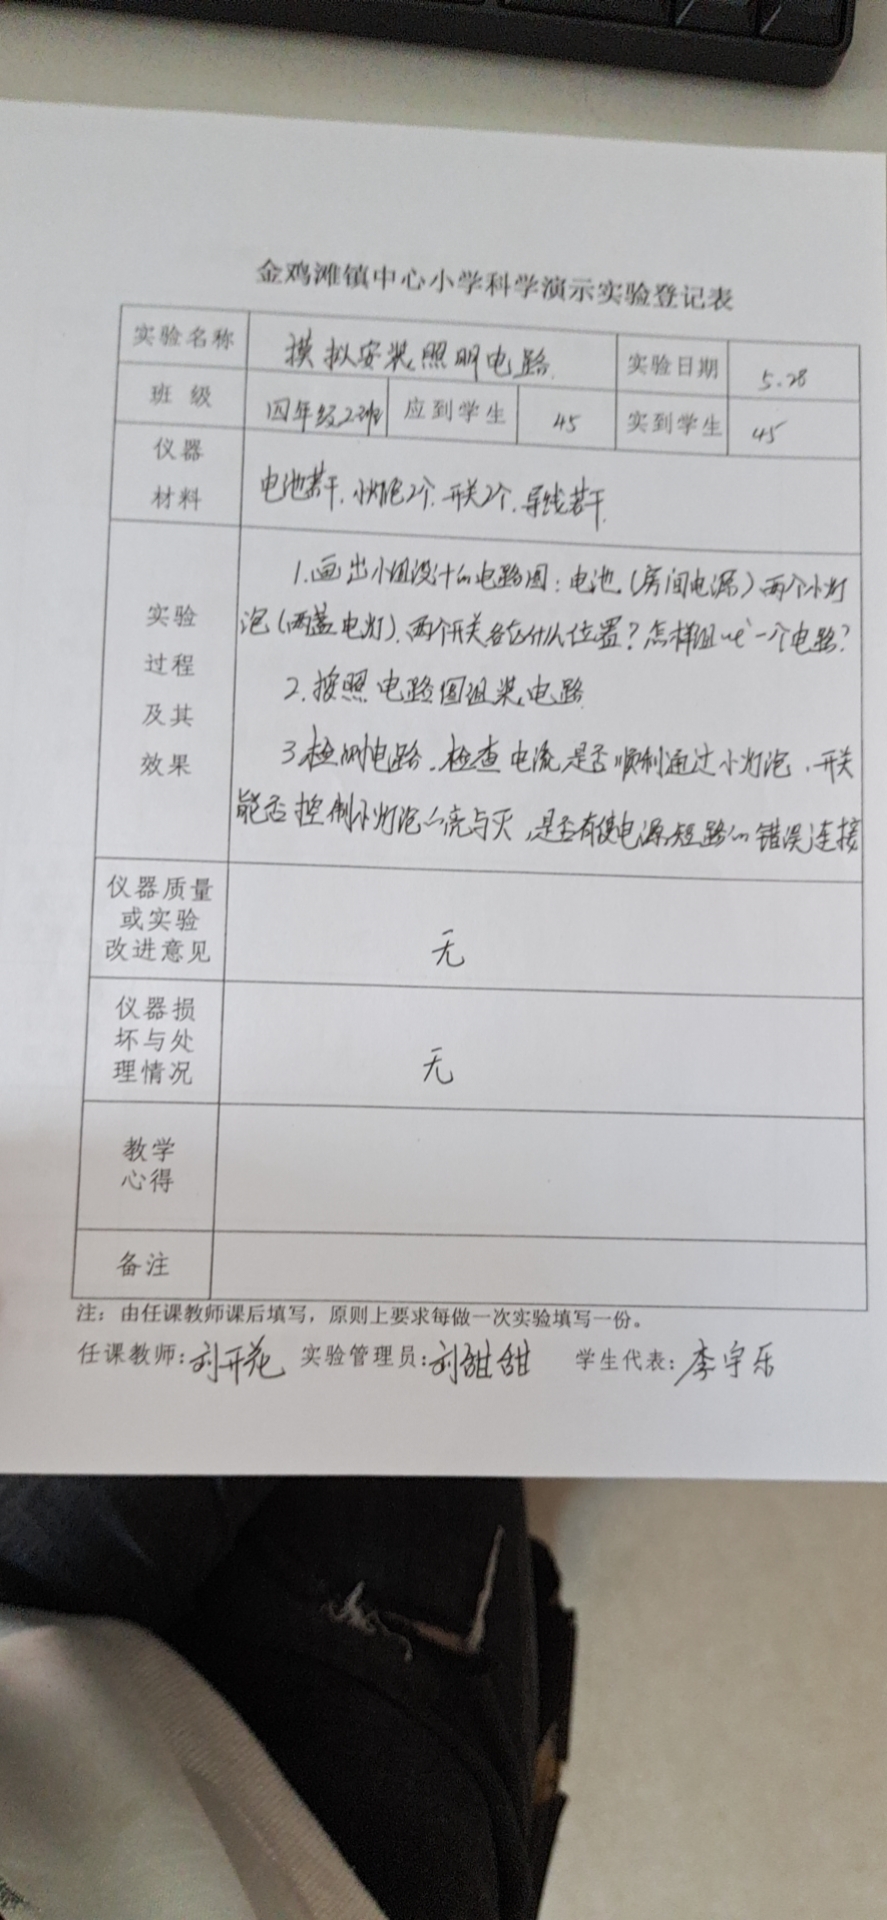 金鸡滩镇中心小学科学演示实验登记表
实验名称 模拟安装照明电路 实验日期 5.28
班 级 四年级2班 应到学生 45 实到学生 45
仪器
材料
电池若干、小灯泡2个、开关2个、导线若干
1.画出小组设计的电路图:电池(房间电源)两个小灯
泡(两盏电灯)、两个开关各在什么位置?怎样组 一个电路?
2.按照电路图组装电路
3.检测电路、检查电流是否顺利通过小灯泡、开关
能否控制小灯泡的亮与灭,是否有使电源短路的错误连接
实验
过程
及其
效果
仪器质量
或实验
改进意见
无
仪器损
坏与处
理情况
无
教学
心得
备注
注:由任课教师课后填写,原则上要求每做一次实验填写一份。
任课教师:刘开花 实验管理员:刘甜甜 学生代表:李宇乐